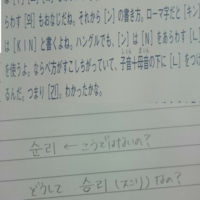 らわす [의] もおなじだね。それから [ン] の書き方。ローマ字だと [キン]
は [KIN] と書くよね。ハングルでも、[ン] は [N] をあらわす [ㄴ]
を使うよ。ならべ方がすこしちがっていて、子音十母音の下に [ㄴ] をつけ
るんだ。つまり [긴]。わかったかな。
순리 ← こうではないの?
どうして 승리 (スンリ) なの?